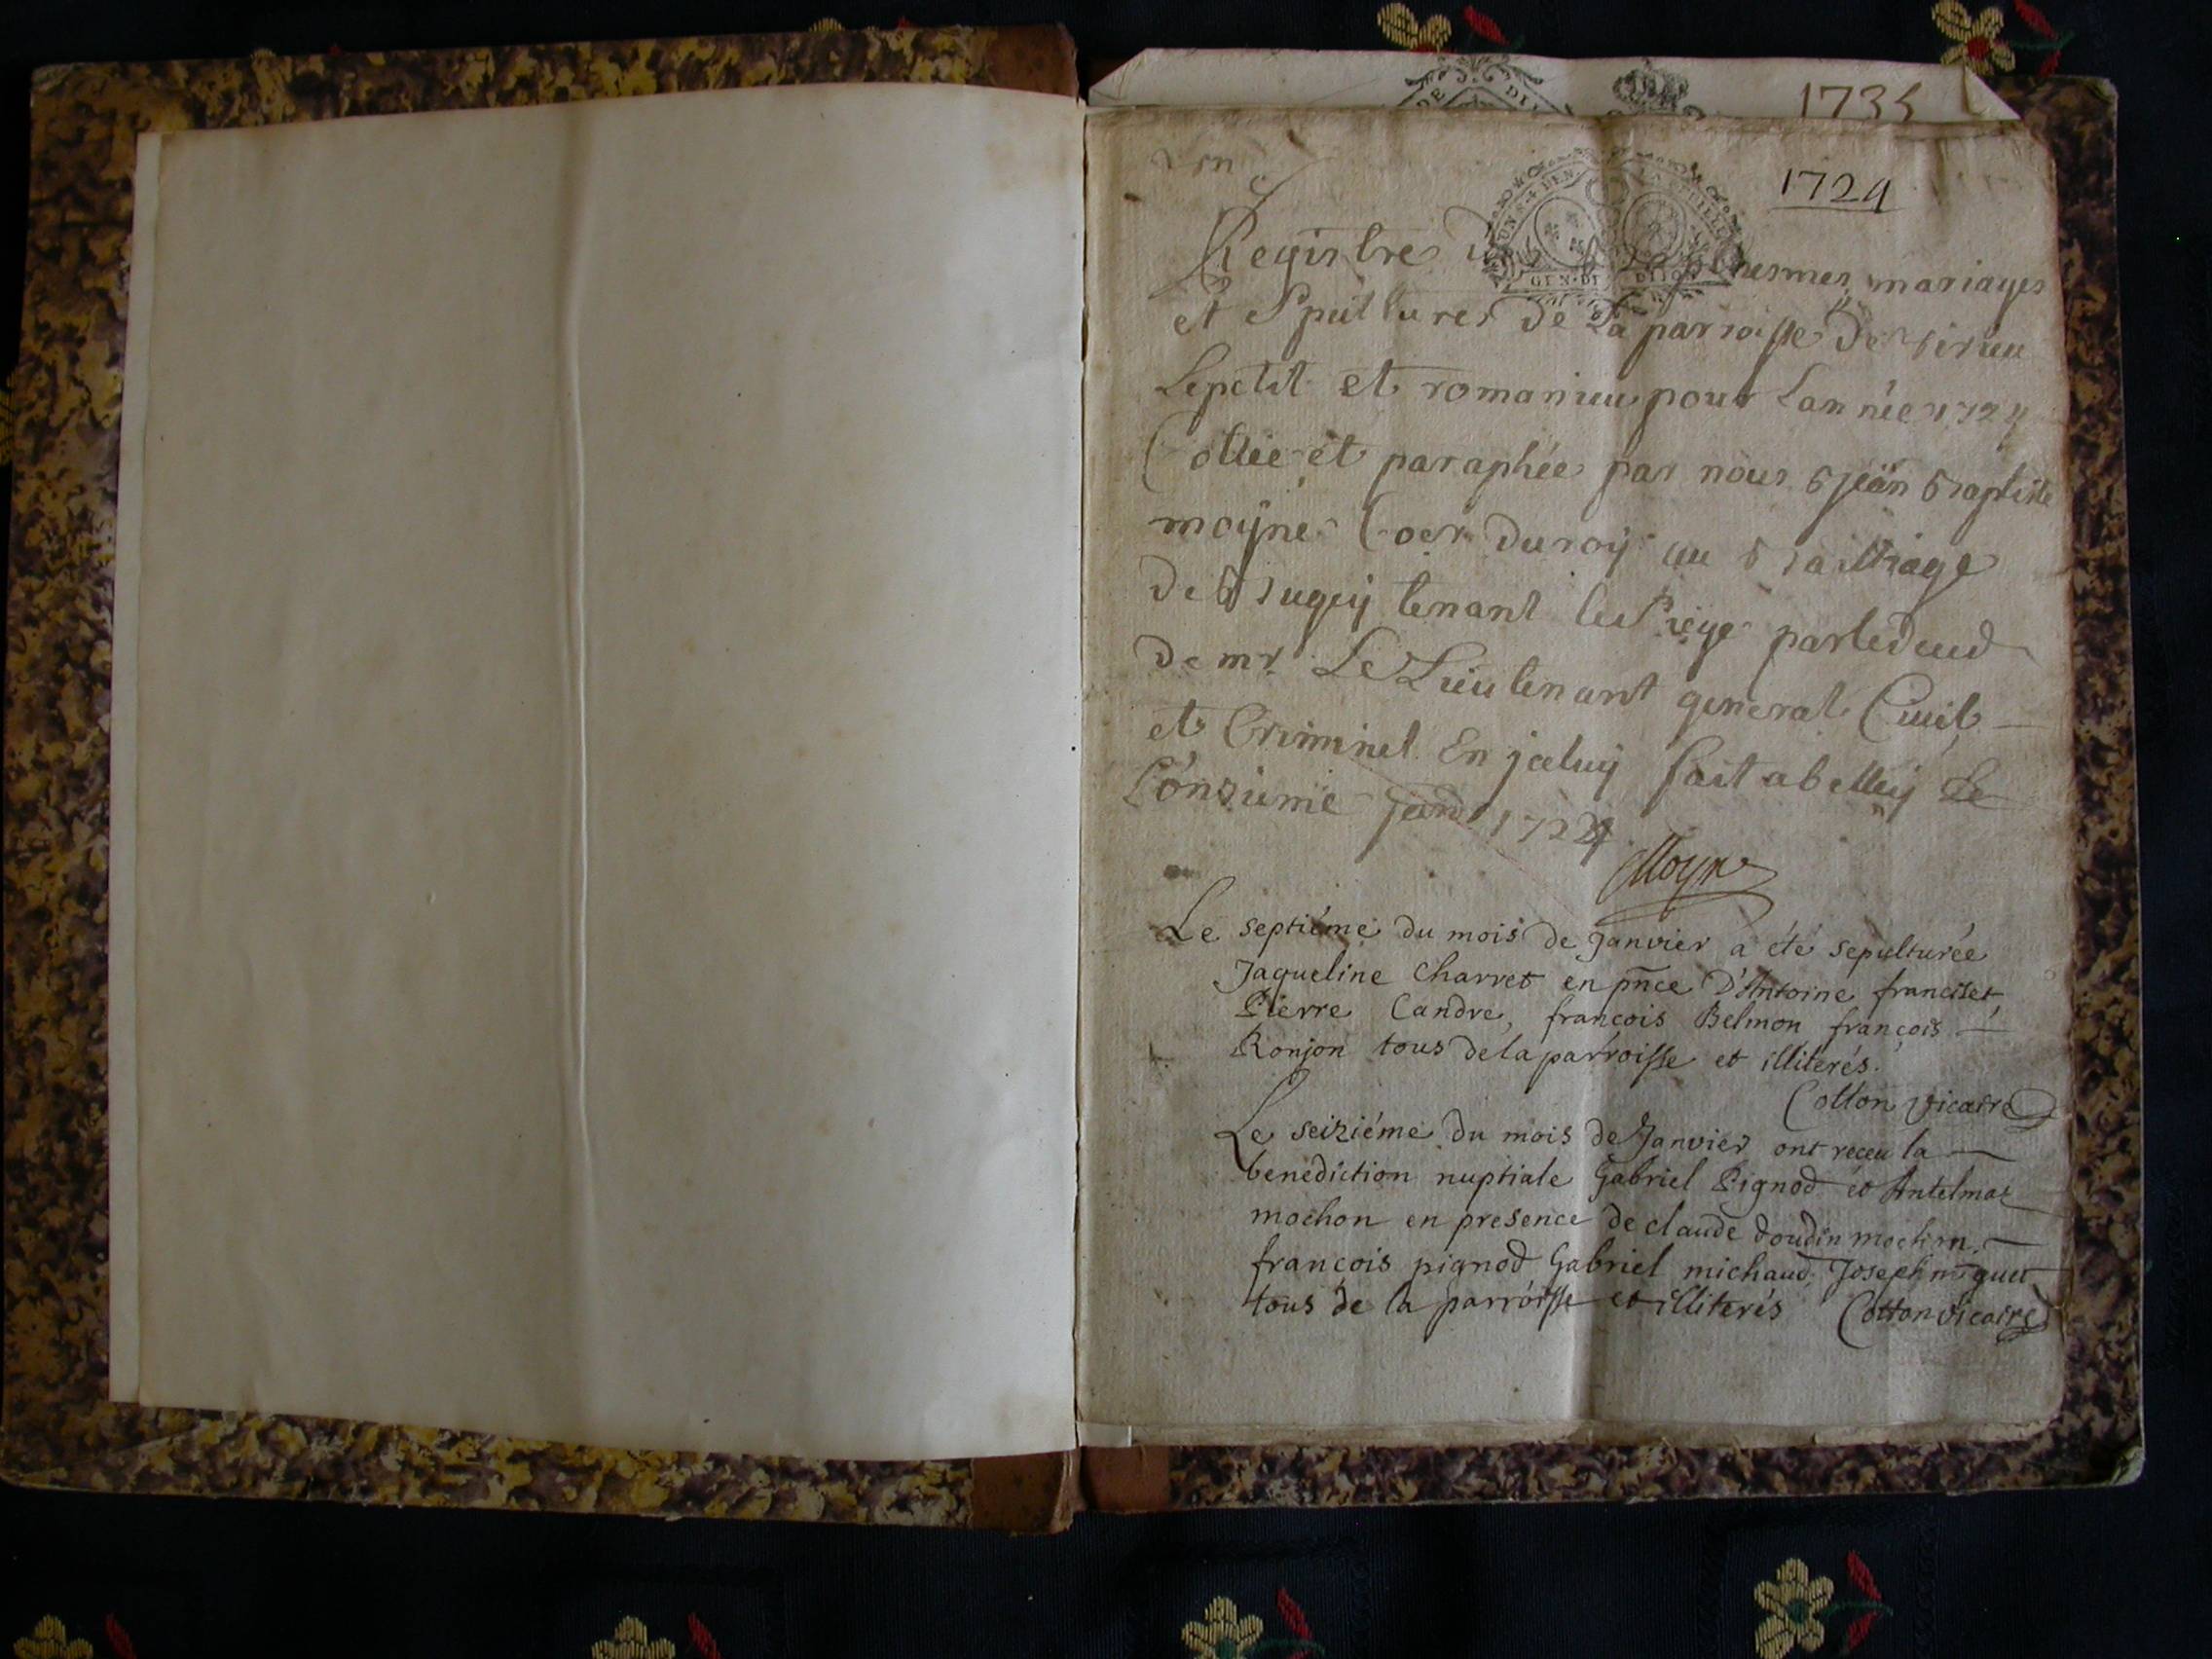 1735
1724
UN S. 4 DEN. LA FEUILLE
GEN. DE DIJON
Registre des Baptesmes, mariages
et Spultures de La parroisse de virieu
Lepetit et romanieu pour Lannée 1724
Cottée et paraphée par nous Jean Baptiste
moyne Coer du roy au Bailliage
de Bugey tenant le Siege
de mr. Le Lieutenant general Civil
et Criminel En jceluy fait a belley Le
Onzieme Janr. 1724
Moyne
Le septiéme du mois de Janvier a été sepulturée
Jaqueline Charvet en pñce D'Antoine franciset
Pierre Candre, françois Belmon françois
Ronjon tous de la parroisse et illiterés.
Cotton vicaire
Le seiziéme du mois de Janvier ont receu la
benediction nuptiale Gabriel Pignod et Antelmaz
mochon en presence de claude doudin mochon,
françois pignod Gabriel michaud Joseph
tous de la parroisse et illiterés Cotton vicaire